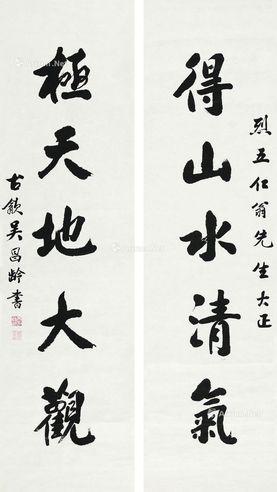 烈五仁翁先生大正
得山水清氣
極天地大觀
古歙吴昌龄書